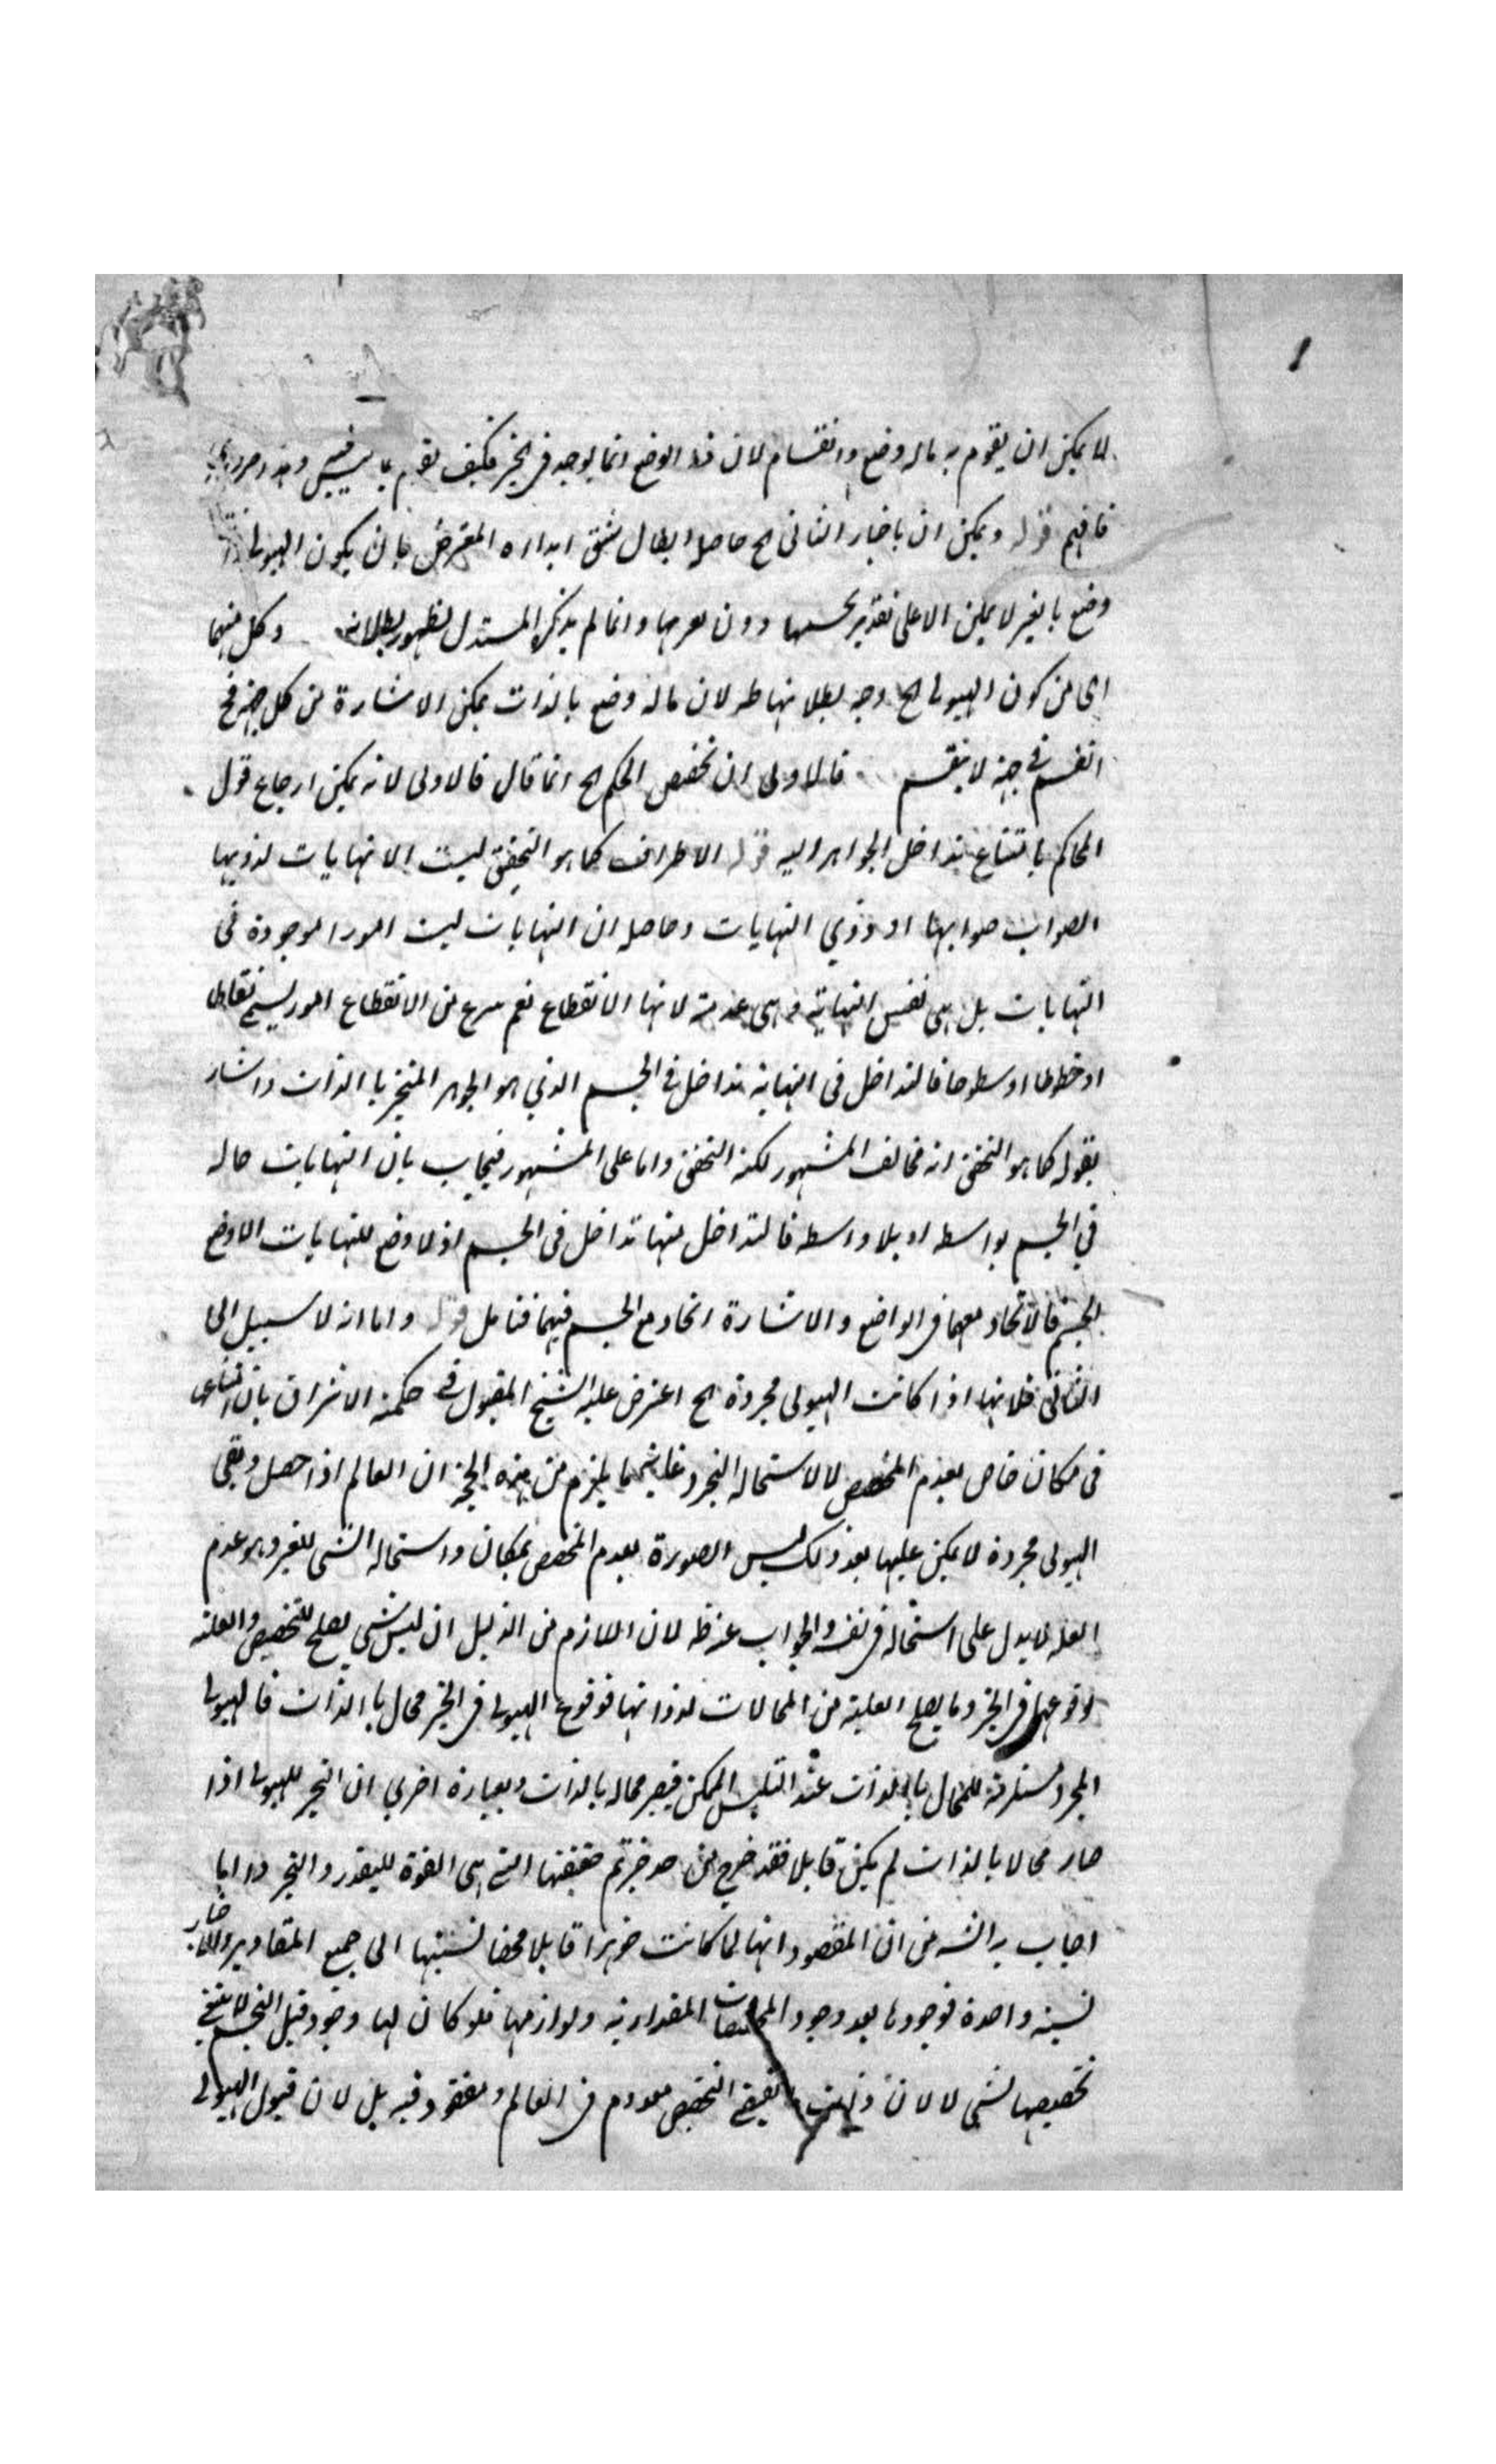 لا يمكن ان يقوم به ماله وضع وانقسام لان هذا الوضع انما يوجد فى الحيز فكيف يقوم بما ليس فيه
فافهم قوله ويمكن ان باختيار الثانى الخ حاصله ابطال شق ابداه المعترض بان يكون الهيولى
وضع بالغير لا يمكن الا على تقدير تجسمها دون تعريها وانما لم يذكر المستدل لظهور بطلانه وكل منهما
اى من كون الهيولى الخ وجه بطلانهما ظ لان ماله وضع بالذات يمكن الاشارة من كل جهة
انقسم فى جهة لا ينقسم فالاولى ان تخصص الحكم الخ انما قال فالاولى لانه يمكن ارجاع قول
المحاكم بامتناع تداخل الجواهر اليه قوله الاطراف كما هو التحقيق ليست الا نهايات لذويها
الصواب صوابهنا او ذوي النهايات وحاصله ان النهايات ليست امورا موجودة فى
النهايات بل هى نفس النهاية وهى عدمية لانها الانقطاع نعم من الانقطاع امور نقاطا
او خطوطا او سطوحا فالتداخل فى النهاية تداخل فى الجسم الذي هو الجوهر المتحيز بالذات واشار
بقوله كما هو التحقيق انه مخالف المشهور لكنه التحقيق واما على المشهور فيجاب بان النهايات حالة
في الجسم بواسطه او بلا واسطه فالتداخل منها تداخل فى الجسم اذ لا وضع للنهايات الا وضع
الجسم فالاتحاد معها فى الواضع والاشارة اتحاد مع الجسم فيهما فتامل قوله واما انه لا سبيل الى
الثانى فلانها اذا كانت الهيولى مجردة الخ اعترض عليه الشيخ المقتول فى حكمة الاشراق بان امتناعى
فى مكان خاص لعدم المخصص لا لاستحالة التجرد غاية ما يلزم من هذه الحجة ان العالم اذا حصل وبقى
الهيولى مجردة لا يمكن عليها بعد ذلك لبس الصورة لعدم المخصص بمكان واستحالة الشى للغير وهو عدم
العلة لا يدل على استحالة فى نفسه والجواب عنه ظ لان اللازم من الدليل ان ليس شى يصلح للتخصيص والعلة
لوقوعها فى الحيز وما يصلح العلية من المحالات لذواتها فوقوع الهيولى فى الحيز محال بالذات فالهيولى
المجردة مستلزمة للمحال بالذات عند التلبس الممكن فيصير محاله بالذات وبعبارة اخري ان التحيز للهيولى اذا
صار محالا بالذات لم يكن قابلا فقد خرج من حقيقتها التى هى القوة للتقدر والتحيز واما ما
اجاب به الشه من ان المقصود انها لما كانت جوهرا قابلا محضا نسبتها الى جميع المقادير والاحياز
نسبة واحدة فوجودها بعد وجود المخصصات المقدارية ولوازمها فلو كان لها وجود قبل التجسم لا يقتضى
تخصيصها بشى لا لان ما يقتضى التخصيص معدوم فى العالم ومفقود فيه بل لان قبول الهيولى